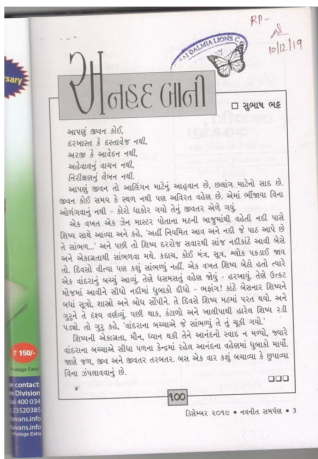 RP-
10/12/19
DALMIA LIONS C
અનહદ બાની
□ સુભાષ ભટ્ટ
આપણું જીવન કોઈ,
દરખાસ્ત કે દસ્તાવેજ નથી,
અરજી કે આવેદન નથી,
અહેવાલનું વાચન નથી,
નિરીક્ષણનું લેખન નથી.
આપણું જીવન તો આલિંગન માટેનું આહ્વાન છે, છલાંગ માટેનો સાદ છે.
જીવન કોઈ સમય કે સ્થળ નથી પણ અવિરત વહેણ છે. એમાં ભીંજાયા વિના
ઓળંગવાનું નથી - કોરો ધાકોર ગયો તેનું જીવતર એળે ગયું.
એક વખત એક ઝેન માસ્ટર પોતાના મઠની બાજુમાંથી વહેતી નદી પાસે
શિષ્ય સાથે આવ્યા અને કહ્યું, 'અહીં નિયમિત આવ અને નદી જે પાઠ આપે છે
તે સાંભળ...' અને પછી તો શિષ્ય દરરોજ સવારથી સાંજ નદીકાંઠે આવી બેસે
અને એકાગ્રતાથી સાંભળવા મથે. કદાચ, કોઈ મંત્ર, સૂત્ર, શ્લોક પકડાઈ જાય
તો. દિવસો વીત્યા પણ કશું સાંભળ્યું નહીં. એક વખત શિષ્ય બેઠો હતો ત્યારે
એક વાંદરાનું બચ્ચું આવ્યું, તેણે ધસમસતું વહેણ જોયું - હરખાયું, તેણે ઉત્કટ
મોજમાં આવીને સીધો નદીમાં ધુબાકો દીધો - ભફાંગ! કાંઠે બેસનાર શિષ્યને
બધાં સૂત્રો, શાસ્ત્રો અને બોધ સાંપડીને. તે દિવસે શિષ્ય મઠમાં પરત થયો. અને
ગુરુને તે દૃશ્ય વર્ણવ્યું. પછી થાક, કંટાળો અને ખાલીપાથી હારેલ શિષ્ય રડી
પડ્યો. તો ગુરુ કહે, 'વાંદરાના બચ્ચાએ જે સાંભળ્યું તે તું ચૂકી ગયો.'
શિષ્યની એકાગ્રતા, મૌન, ધ્યાન થકી તેને આનંદનો સ્વાદ ન મળ્યો, જ્યારે
વાંદરાના બચ્ચાએ સીધા પળના કેન્દ્રમાં રહેલ આનંદના વહેણમાં ધુબાકો માર્યો.
જાણે જળ, જીવ અને જીવતર તરબતર. બસ એક વાર કશું બચાવ્યા કે છુપાવ્યા
વિના ઝંપલાવવાનું છે.
□□□
100
ડિસેમ્બર ૨૦૧૯ • નવનીત સમર્પણ • 3
sary
₹ 150/-
Postage Extra
contact
n Division
400 034
23520385
vans.info
wans.info
Postage Extra